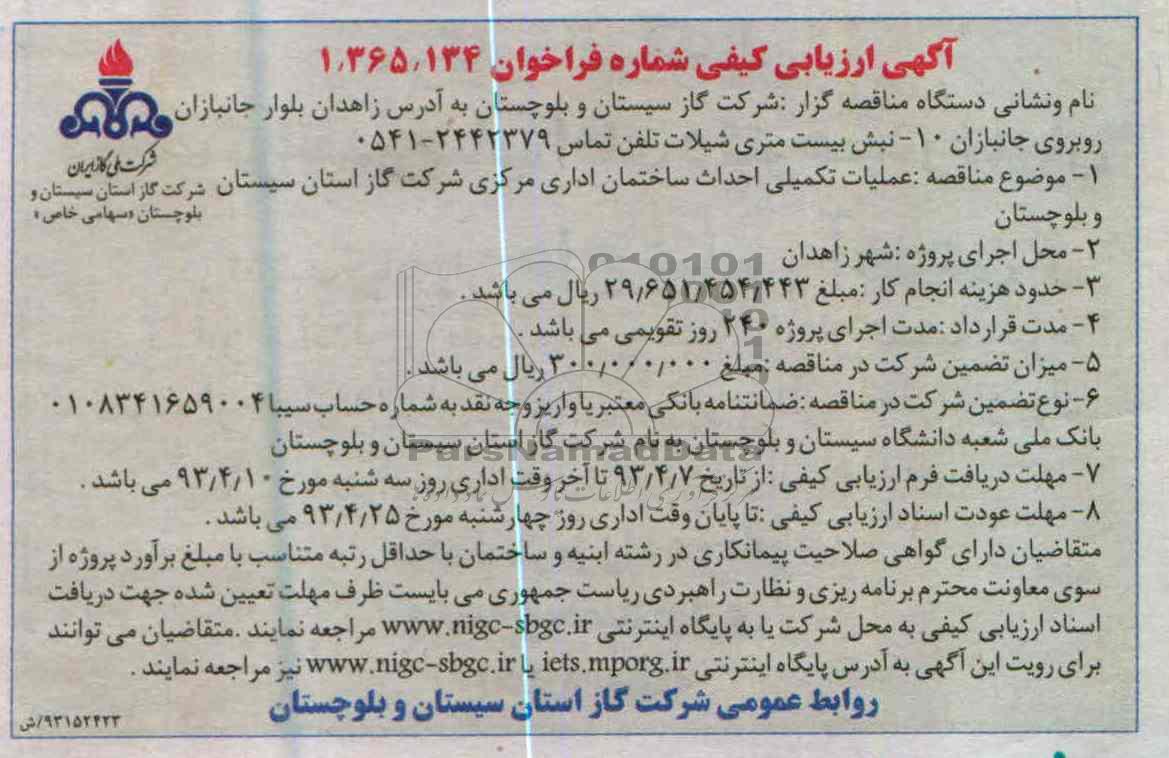 آگهی ارزیابی کیفی شماره فراخوان ۱،۳۶۵،۱۳۴
نام ونشانی دستگاه مناقصه گزار :شرکت گاز سیستان و بلوچستان به آدرس زاهدان بلوار جانبازان
روبروی جانبازان ۱۰- نبش بیست متری شیلات تلفن تماس ۲۴۴۲۳۷۹-۰۵۴۱
شرکت ملی گاز ایران
شرکت گاز استان سیستان و
بلوچستان «سهامی خاص»
۱- موضوع مناقصه :عملیات تکمیلی احداث ساختمان اداری مرکزی شرکت گاز استان سیستان
و بلوچستان
۲- محل اجرای پروژه :شهر زاهدان
۳- حدود هزینه انجام کار :مبلغ ۲۹٫۶۵۱٫۴۵۴٫۴۴۳ ریال می باشد .
۴- مدت قرارداد :مدت اجرای پروژه ۲۴۰ روز تقویمی می باشد .
۵- میزان تضمین شرکت در مناقصه :مبلغ ۳۰۰٫۰۰۰٫۰۰۰ ریال می باشد .
۶- نوع تضمین شرکت در مناقصه :ضمانتنامه بانکی معتبر یا واریز وجه نقد به شماره حساب سیبا ۰۱۰۸۳۴۱۶۵۹۰۰۴
بانک ملی شعبه دانشگاه سیستان و بلوچستان به نام شرکت گاز استان سیستان و بلوچستان
ParsNamadData
۷- مهلت دریافت فرم ارزیابی کیفی :از تاریخ ۹۳٫۴٫۷ تا آخر وقت اداری روز سه شنبه مورخ ۹۳٫۴٫۱۰ می باشد .
۸- مهلت عودت اسناد ارزیابی کیفی :تا پایان وقت اداری روز چهارشنبه مورخ ۹۳٫۴٫۲۵ می باشد .
متقاضیان دارای گواهی صلاحیت پیمانکاری در رشته ابنیه و ساختمان با حداقل رتبه متناسب با مبلغ برآورد پروژه از
سوی معاونت محترم برنامه ریزی و نظارت راهبردی ریاست جمهوری می بایست ظرف مهلت تعیین شده جهت دریافت
اسناد ارزیابی کیفی به محل شرکت یا به پایگاه اینترنتی www.nigc-sbgc.ir مراجعه نمایند .متقاضیان می توانند
برای رویت این آگهی به آدرس پایگاه اینترنتی iets.mporg.ir یا www.nigc-sbgc.ir نیز مراجعه نمایند .
روابط عمومی شرکت گاز استان سیستان و بلوچستان
۹۳۱۵۲۴۲۳/ش